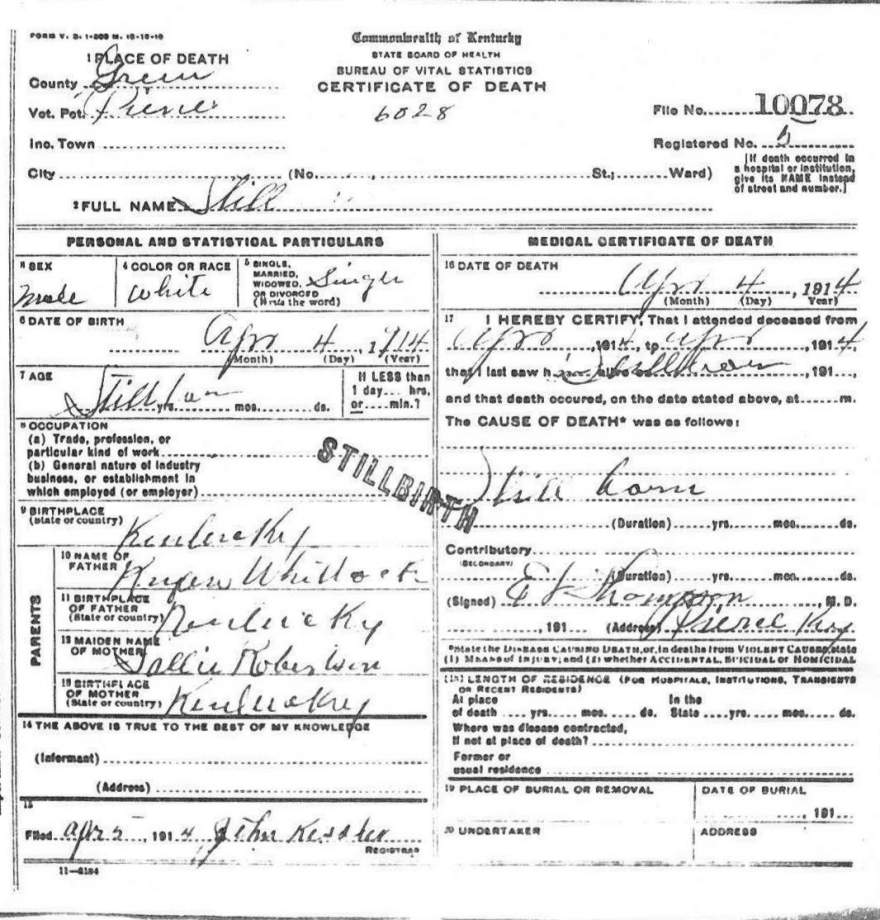 FORM V. S. 1-200 M. 10-10-10
Commonwealth of Kentucky
STATE BOARD OF HEALTH
BUREAU OF VITAL STATISTICS
CERTIFICATE OF DEATH
6028
1 PLACE OF DEATH
County Green
Vot. Pct. Pierce
Inc. Town
City (No. , St.; Ward)
File No. 10078
Registered No. 5
[If death occurred in
a hospital or institution,
give its NAME instead
of street and number.]
2 FULL NAME Still
PERSONAL AND STATISTICAL PARTICULARS
3 SEX
male
4 COLOR OR RACE
white
5 SINGLE,
MARRIED,
WIDOWED,
OR DIVORCED
(Write the word)
Single
6 DATE OF BIRTH
Apr 4, 1914
(Month) (Day) (Year)
7 AGE
Still born
yrs. mos. ds.
If LESS than
1 day.... hrs.
or.....min.?
8 OCCUPATION
(a) Trade, profession, or
particular kind of work
(b) General nature of industry
business, or establishment in
which employed (or employer)
STILLBIRTH
9 BIRTHPLACE
(State or country)
Kentucky
PARENTS
10 NAME OF
FATHER
Whitlock
11 BIRTHPLACE
OF FATHER
(State or country)
Kentucky
12 MAIDEN NAME
OF MOTHER
Sallie Robertson
13 BIRTHPLACE
OF MOTHER
(State or country)
Kentucky
14 THE ABOVE IS TRUE TO THE BEST OF MY KNOWLEDGE
(Informant)
(Address)
15
Filed Apr 5, 1914 John Kessler
REGISTRAR
11—6184
MEDICAL CERTIFICATE OF DEATH
16 DATE OF DEATH
Apr 4, 1914
(Month) (Day) Year)
17 I HEREBY CERTIFY, That I attended deceased from
Apr, 1914, to Apr, 1914,
that I last saw h Stillborn, 191...,
and that death occured, on the date stated above, at.......m.
The CAUSE OF DEATH* was as follows:
Still born
(Duration) yrs. mos. ds.
Contributory
(SECONDARY)
(Duration) yrs. mos. ds.
(Signed) Thompson, M. D.
, 191 (Address) Pierce Ky
*State the DISEASE CAUSING DEATH, or, in deaths from VIOLENT CAUSES, state
(1) MEANS OF INJURY; and (2) whether ACCIDENTAL, SUICIDAL or HOMICIDAL
18 LENGTH OF RESIDENCE (FOR HOSPITALS, INSTITUTIONS, TRANSIENTS
OR RECENT RESIDENTS)
At place In the
of death .... yrs. .... mos. .... ds. State ....yrs. .... mos. .... ds.
Where was disease contracted,
If not at place of death?
Former or
usual residence
19 PLACE OF BURIAL OR REMOVAL
DATE OF BURIAL
, 191
20 UNDERTAKER
ADDRESS